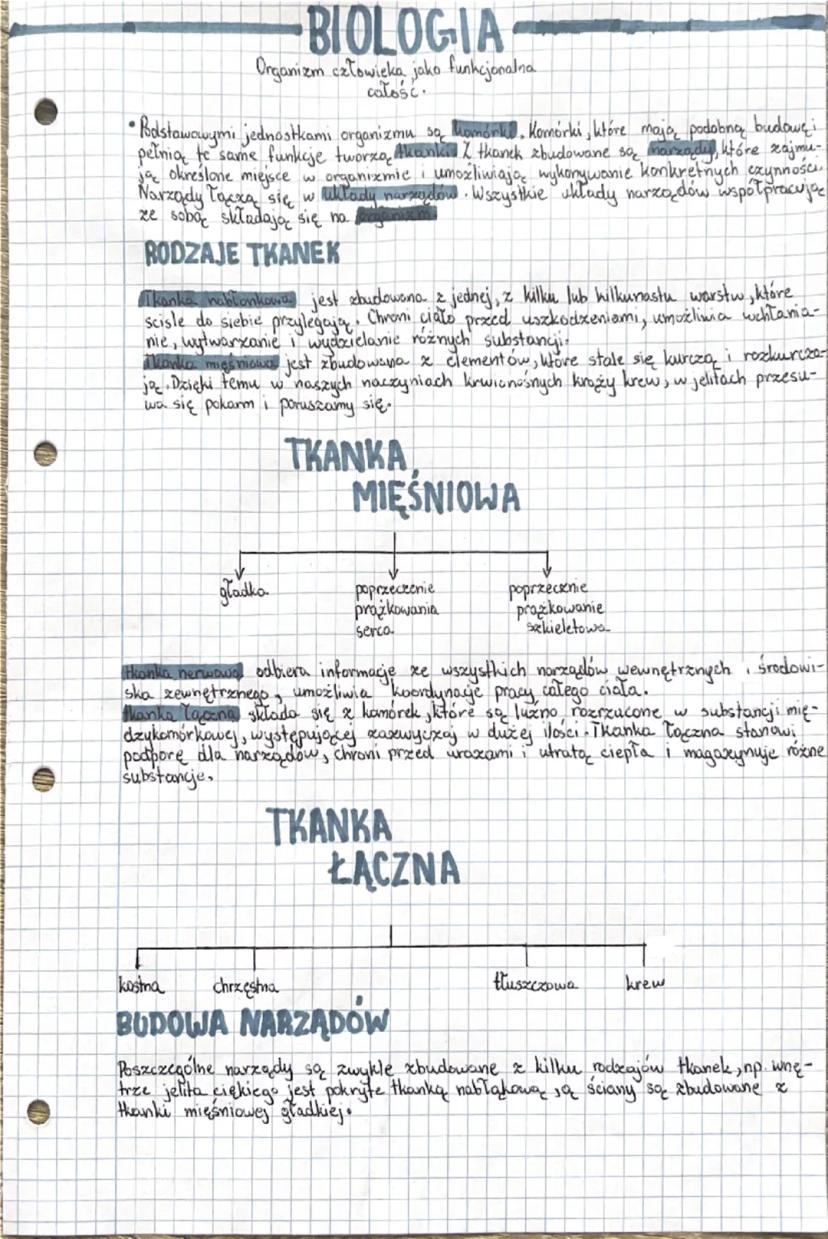 BIOLOGIA
Organizm człowieka jako funkcjonalna
całość.
• Podstawowymi jednostkami organizmu są komórki. Komórki, które mają podobną budowę i
pełnią te same funkcje tworzą tkanki. Z tkanek zbudowane są narządy, które zajmu-
ją określone miejsce w organizmie i umożliwiają wykonywanie konkretnych czynności.
Narządy łączą się w układy narządów. Wszystkie układy narządów współpracując
ze sobą składają się na organizm
RODZAJE TKANEK
Tkanka nabłonkowa jest zbudowana z jednej, z kilku lub kilkunastu warstw, które
ściśle do siebie przylegają. Chroni ciało przed uszkodzeniami, umożliwia wchłania-
nie, wytwarzanie i wydzielanie różnych substancji.
Tkanka mięśniowa jest zbudowana z elementów, które stale się kurczą i rozkurcza-
ją. Dzięki temu w naszych naczyniach krwionośnych krąży krew, w jelitach przesu-
wa się pokarm i poruszamy się.
TKANKA
MIĘŚNIOWA
gładka poprzecznie poprzecznie
prążkowania prążkowanie
serca szkieletowa
tkanka nerwowa odbiera informacje ze wszystkich narządów wewnętrznych i środowi-
ska zewnętrznego, umożliwia koordynację pracy całego ciała.
tkanka łączna składa się z komórek, które są luźno rozrzucone w substancji mię-
dzykomórkowej, występującej zazwyczaj w dużej ilości. Tkanka łączna stanowi
podporę dla narządów, chroni przed urazami i utratą ciepła i magazynuje różne
substancje.
TKANKA
ŁĄCZNA
kostna chrzęstna tłuszczowa krew
BUDOWA NARZĄDÓW
Poszczególne narządy są zwykle zbudowane z kilku rodzajów tkanek, np. wnę-
trze jelita ciękiego jest pokryte tkanką nabłąkową, ą ściany są zbudowane z
tkanki mięśniowej gładkiej.